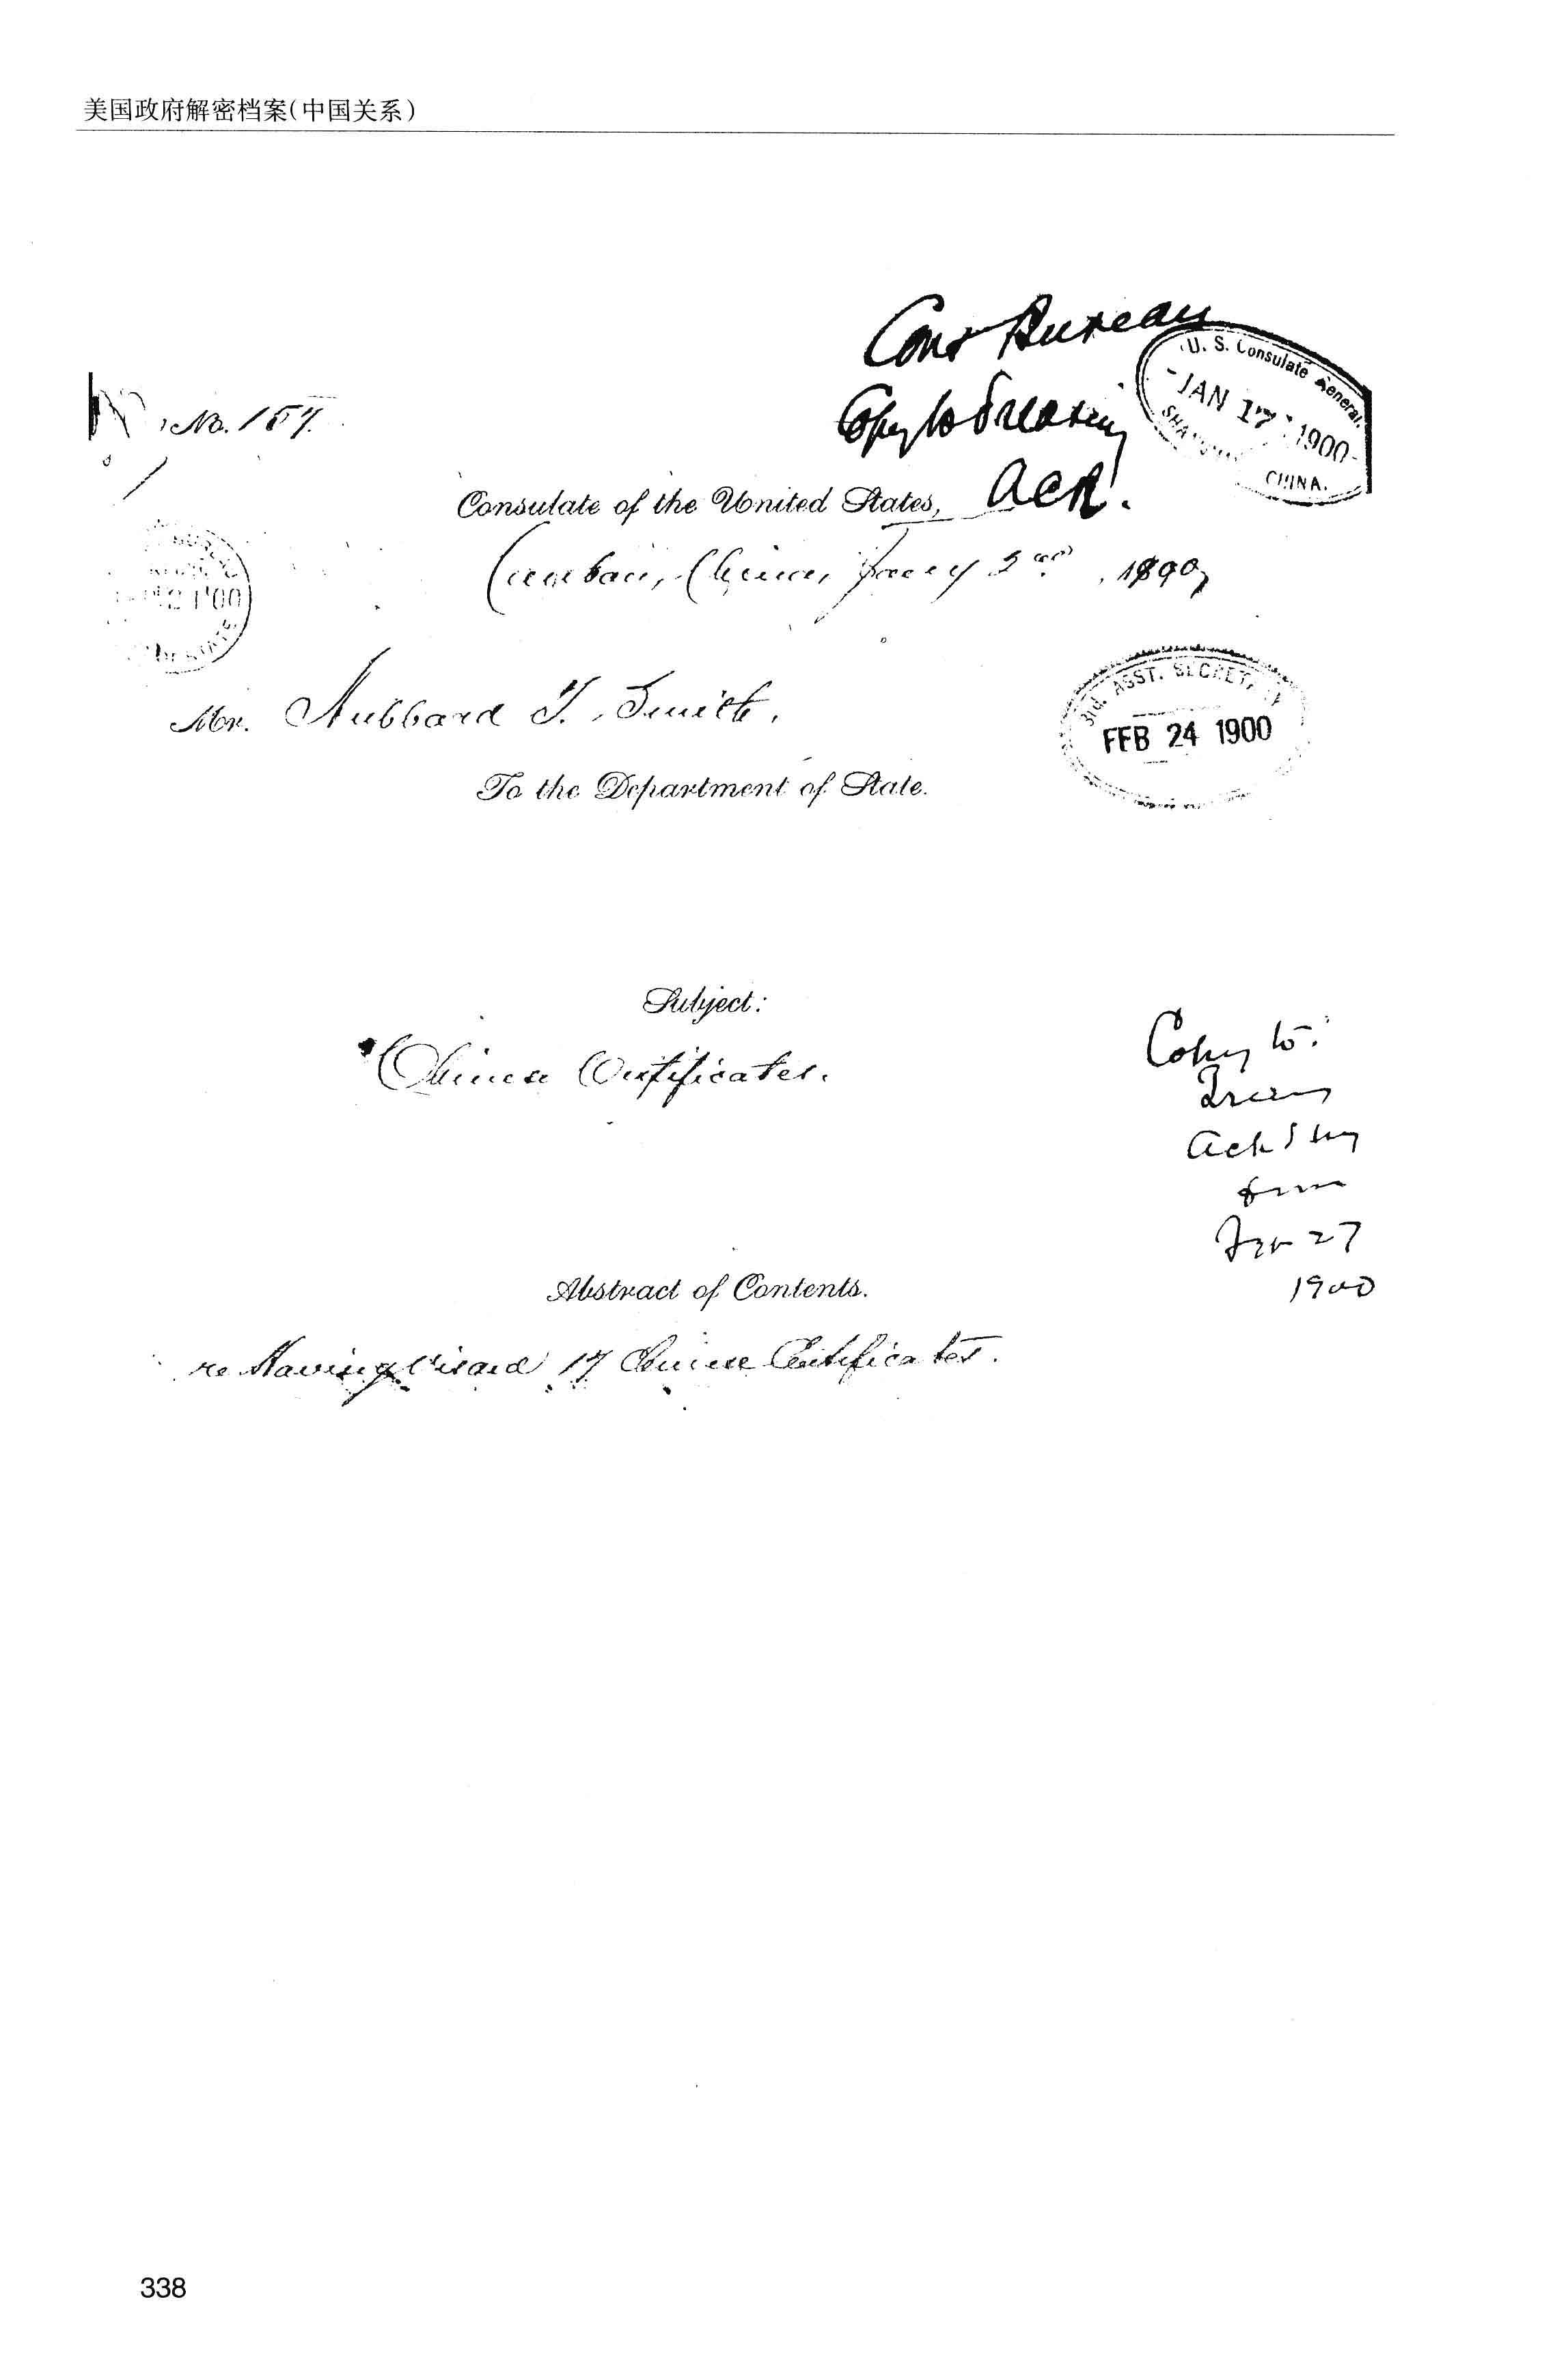 美国政府解密档案(中国关系)
Cons Bureau
U. S. Consulate General
JAN 17 1900
SHANGHAI
CHINA.
No. 157.
Copy to Treasury
ACK.
Consulate of the United States,
China, Jany 2nd, 1890
Mr. Hubbard T. Smith.
3rd. ASST. SECRETARY
FEB 24 1900
To the Department of State.
Subject:
Chinese Certificates.
Copy to
Treasy
Ack
27
1900
Abstract of Contents.
re Having Visaed 17 Chinese Certificates.
338